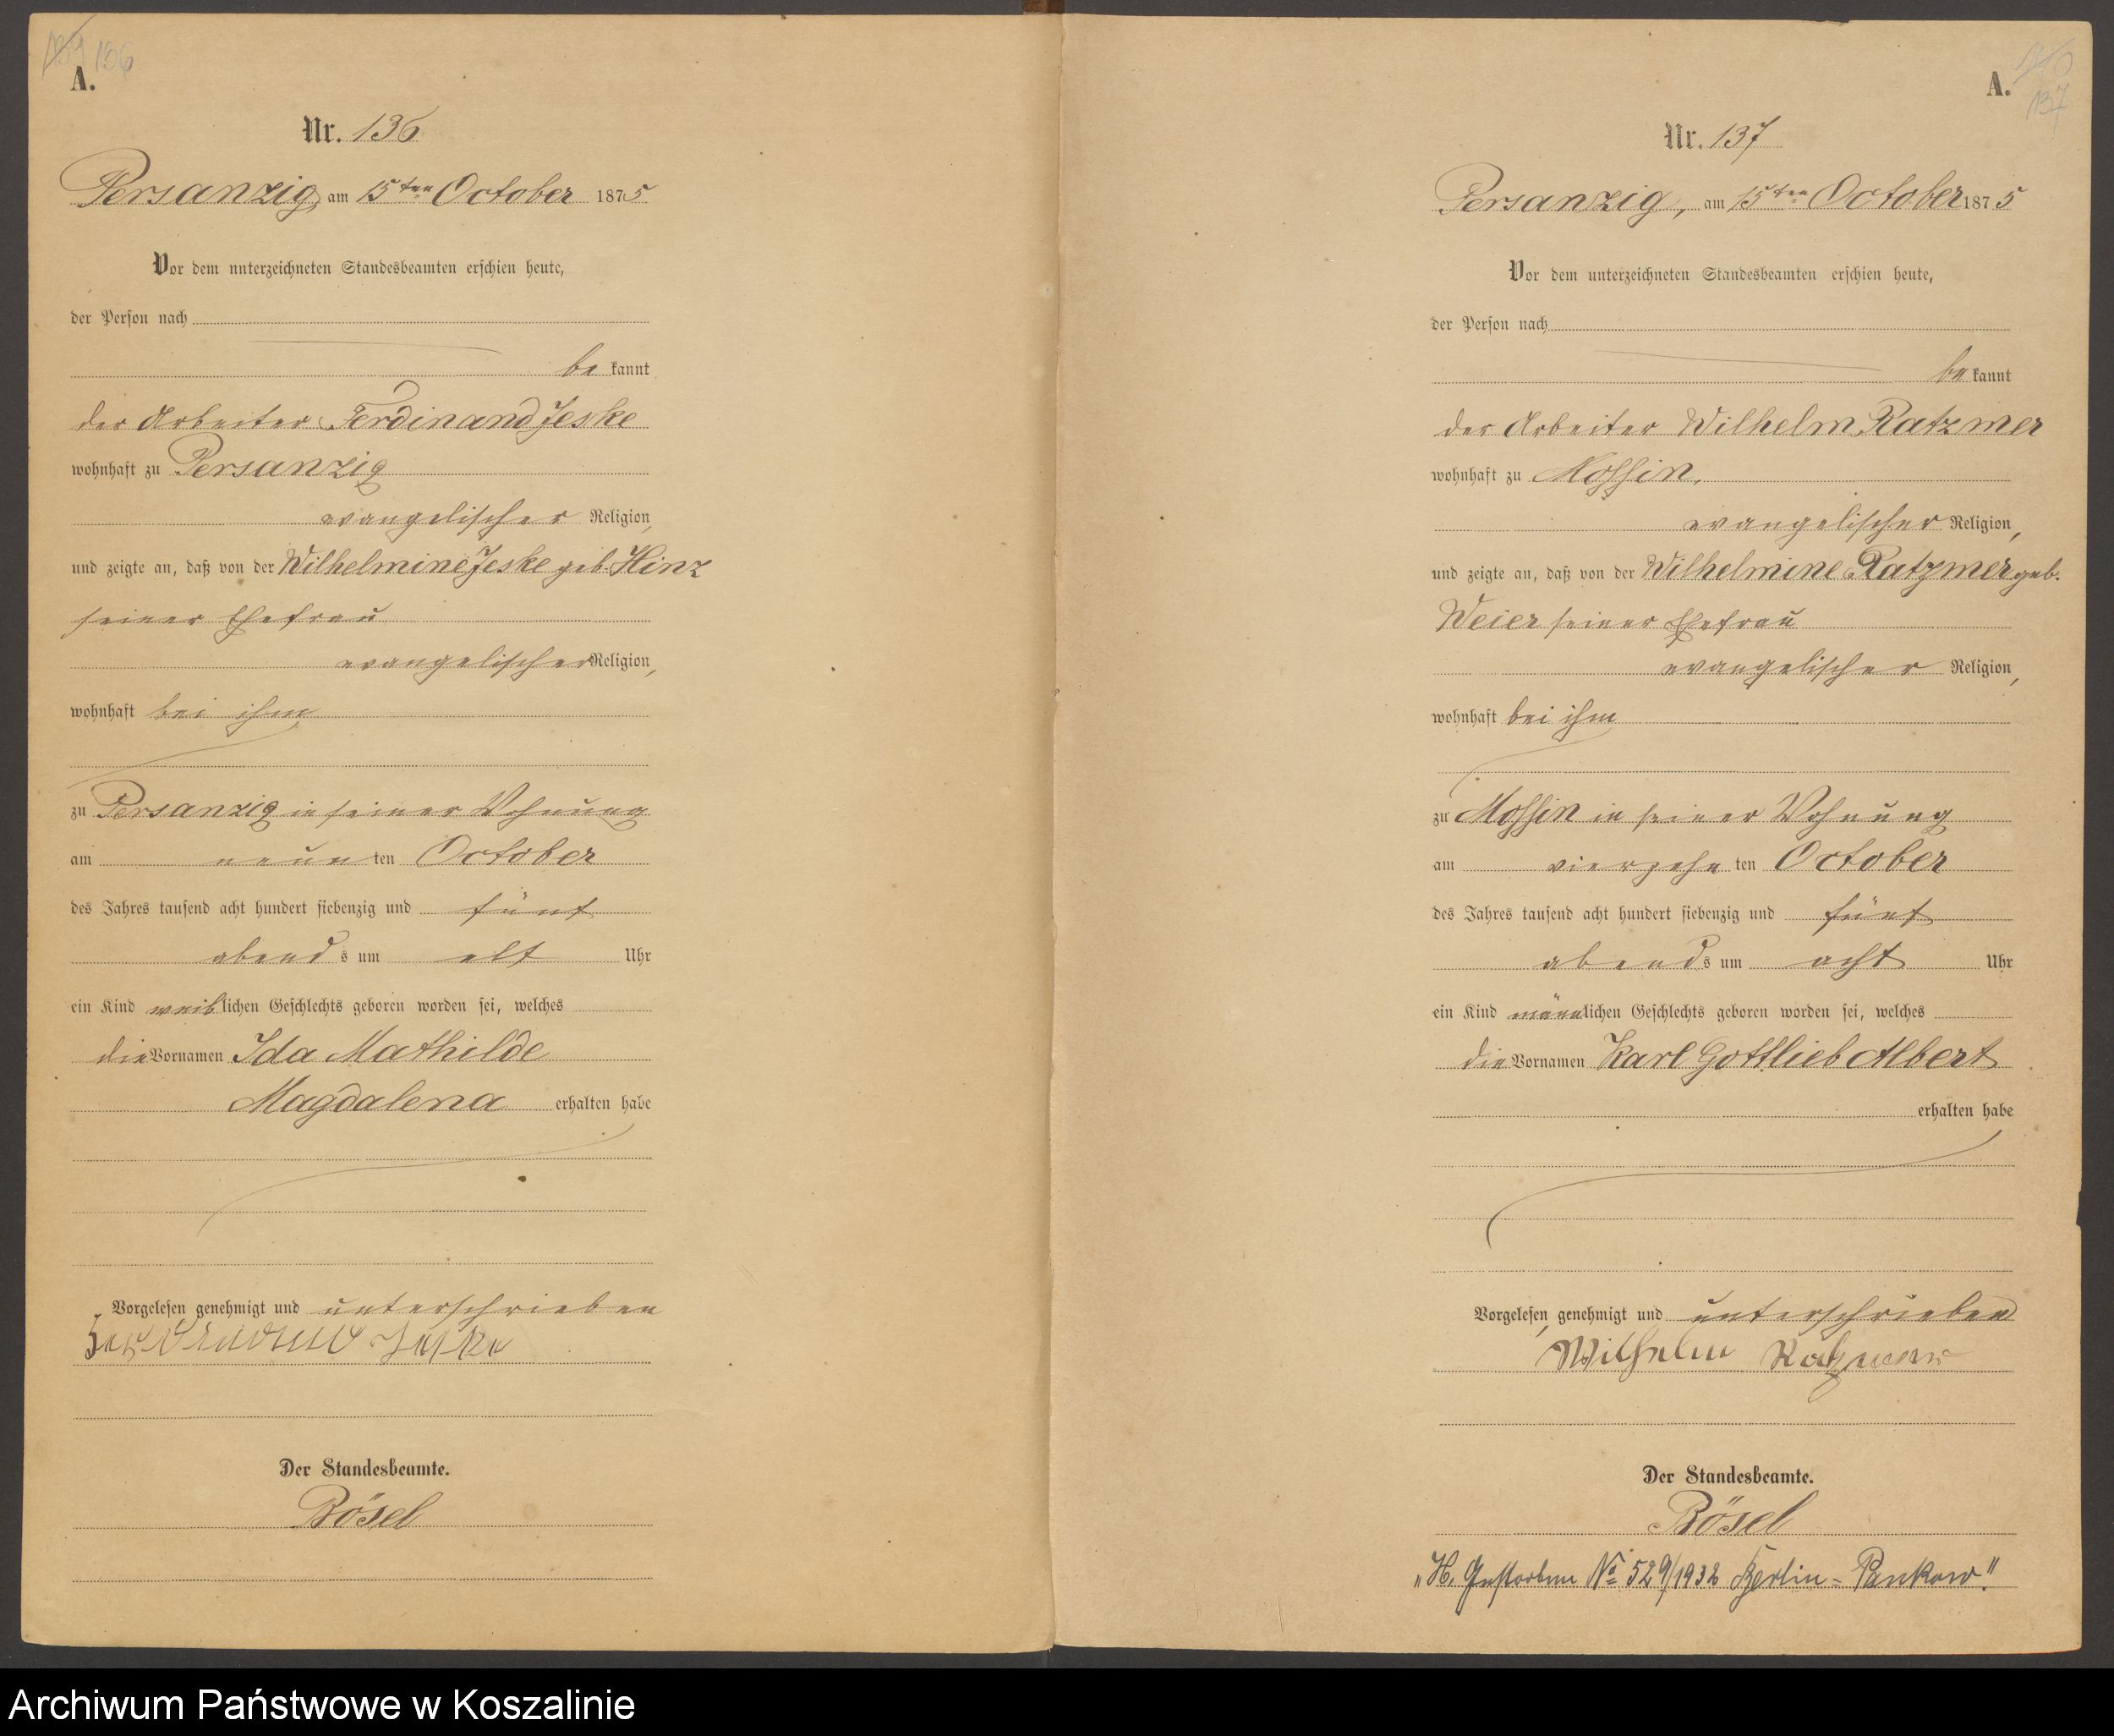 136
A.
Nr. 136
Persanzig, am 15ten October 1875
Vor dem unterzeichneten Standesbeamten erschien heute,
der Person nach
be kannt
der Arbeiter Ferdinand Jeske
wohnhaft zu Persanzig
evangelischer Religion,
und zeigte an, daß von der Wilhelmine Jeske geb. Hinz
seiner Ehefrau
evangelischer Religion,
wohnhaft bei ihm
zu Persanzig in seiner Wohnung
am neun ten October
des Jahres tausend acht hundert siebenzig und fünf
abend s um elf Uhr
ein Kind weiblichen Geschlechts geboren worden sei, welches
die Vornamen Ida Mathilde
Magdalena erhalten habe
Vorgelesen genehmigt und unterschrieben
Ferdinand Jeske
Der Standesbeamte.
Bösel
A.
137
Nr. 137
Persanzig, am 15ten October 1875
Vor dem unterzeichneten Standesbeamten erschien heute,
der Person nach
be kannt
der Arbeiter Wilhelm Ratzmer
wohnhaft zu Mossin,
evangelischer Religion,
und zeigte an, daß von der Wilhelmine Ratzmer geb.
Weier seiner Ehefrau
evangelischer Religion,
wohnhaft bei ihm
zu Mossin in seiner Wohnung
am vierzehn ten October
des Jahres tausend acht hundert siebenzig und fünf
abend s um acht Uhr
ein Kind männlichen Geschlechts geboren worden sei, welches
die Vornamen Karl Gottlieb Albert
erhalten habe
Vorgelesen, genehmigt und unterschrieben
Wilhelm Ratzmer
Der Standesbeamte.
Bösel
„H. Gestorben No 529/1932 Berlin-Pankow."
Archiwum Państwowe w Koszalinie